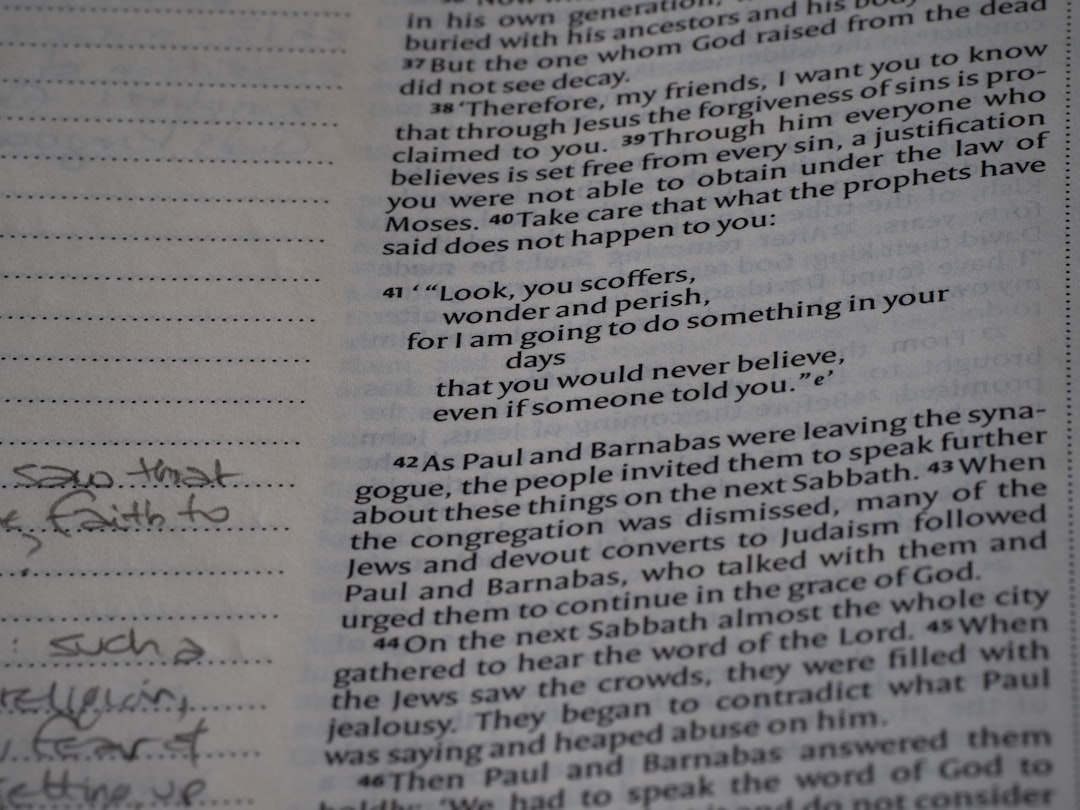 saw that
faith to
?
: such a
religion,
fear &
etting up
in his own generation,
buried with his ancestors and his body
37 But the one whom God raised from the dead
did not see decay.
38 ‘Therefore, my friends, I want you to know
that through Jesus the forgiveness of sins is pro-
claimed to you. 39 Through him everyone who
believes is set free from every sin, a justification
you were not able to obtain under the law of
Moses. 40 Take care that what the prophets have
said does not happen to you:
41 ‘ “Look, you scoffers,
wonder and perish,
for I am going to do something in your
days
that you would never believe,
even if someone told you.” e’
42 As Paul and Barnabas were leaving the syna-
gogue, the people invited them to speak further
about these things on the next Sabbath. 43 When
the congregation was dismissed, many of the
Jews and devout converts to Judaism followed
Paul and Barnabas, who talked with them and
urged them to continue in the grace of God.
44 On the next Sabbath almost the whole city
gathered to hear the word of the Lord. 45 When
the Jews saw the crowds, they were filled with
jealousy. They began to contradict what Paul
was saying and heaped abuse on him.
46 Then Paul and Barnabas answered them
boldly: ‘We had to speak the word of God to
and do not consider